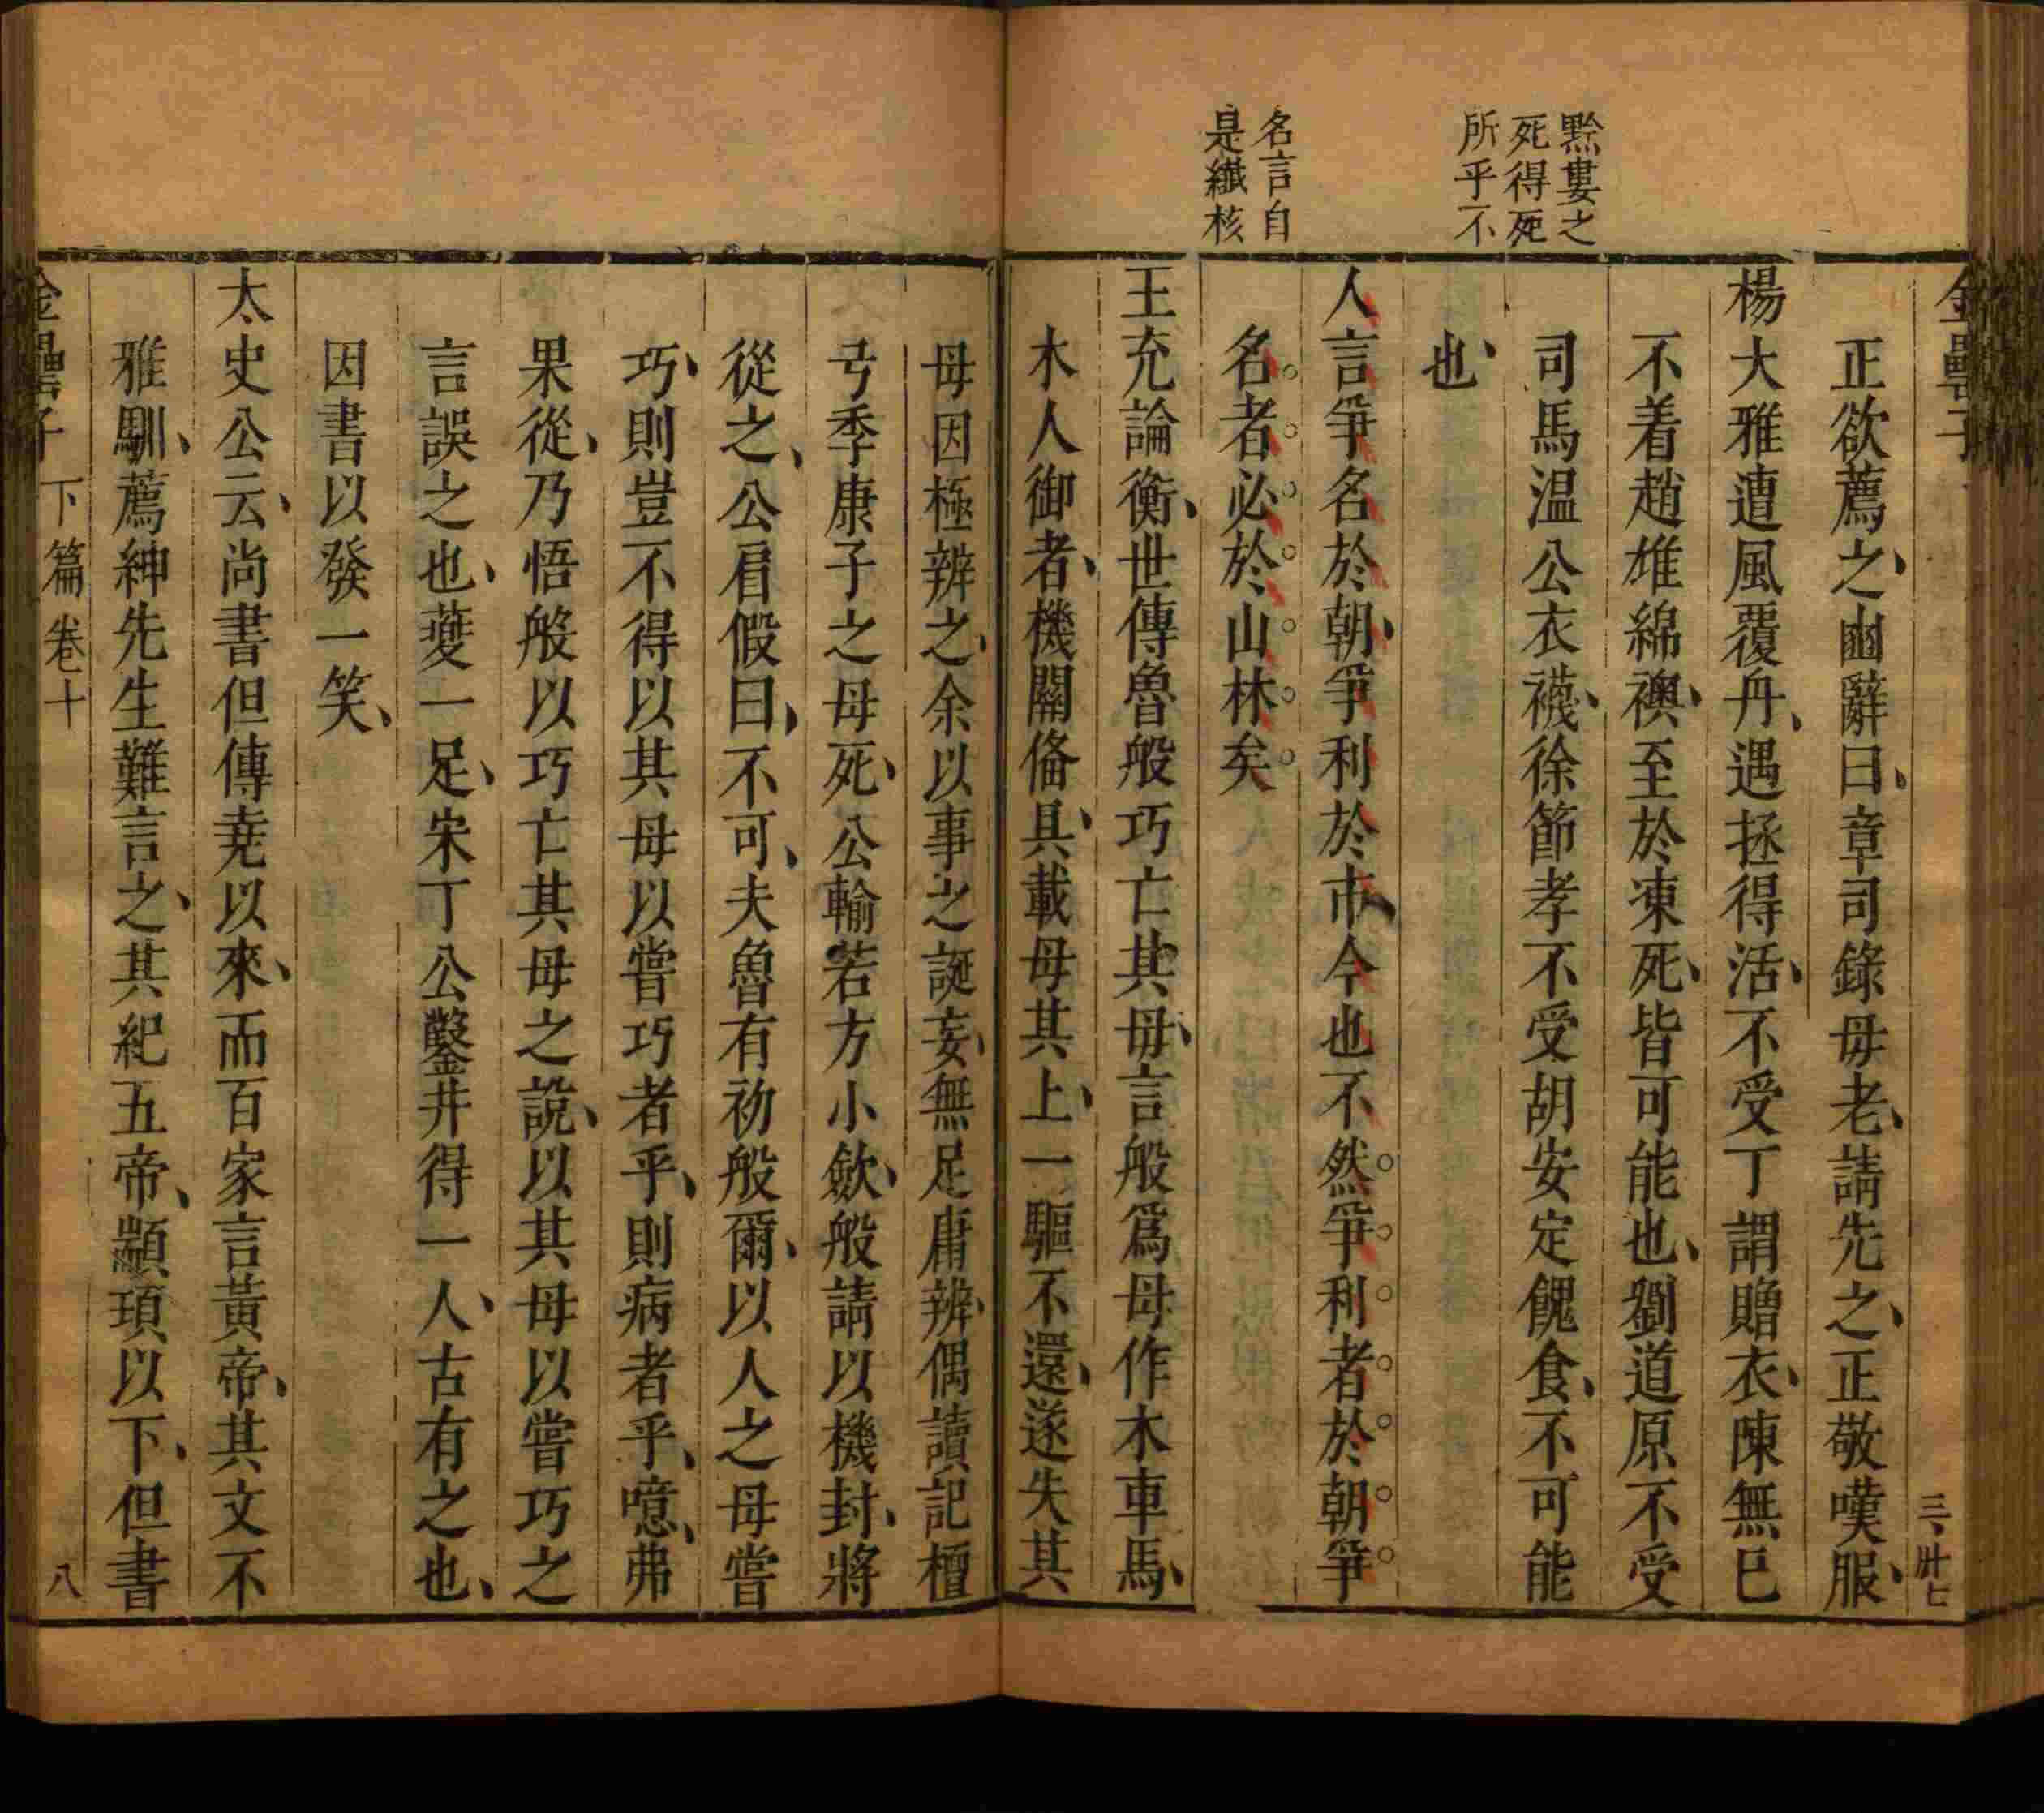 金罍子
三、卅七
黔婁之
死得死
所乎不
名言自
是纖核
正欲薦之、鹵辭曰、章司錄母老、請先之、正敬嘆服、
楊大雅遭風覆舟、遇拯得活、不受丁謂贈衣、陳無巳
不着趙雄綿襖、至於凍死、皆可能也、劉道原不受
司馬温公衣襪、徐節孝不受胡安定餽食、不可能
也、
人言爭名於朝、爭利於市、今也不然爭利者於朝爭
名者必於山林矣
王充論衡、世傳魯般巧亡其母、言般爲母作木車馬、
木人御者、機關偹具、載母其上、一驅不還、遂失其
母因極辨之、余以事之誕妄、無足庸辨、偶讀記檀
弓季康子之母死、公輸若方小歛、般請以機封、將
從之、公肩假曰、不可、夫魯有初般爾、以人之母嘗
巧、則豈不得以其母以嘗巧者乎、則病者乎、噫、弗
果從、乃悟般以巧亡其母之說、以其母以嘗巧之
言誤之也、䕫一足、宋丁公鑿井得一人、古有之也、
因書以發一笑、
太史公云、尚書但傳堯以來、而百家言黃帝、其文不
雅馴、薦紳先生難言之、其紀五帝、顓頊以下、但書
金罍子 下篇卷十 八